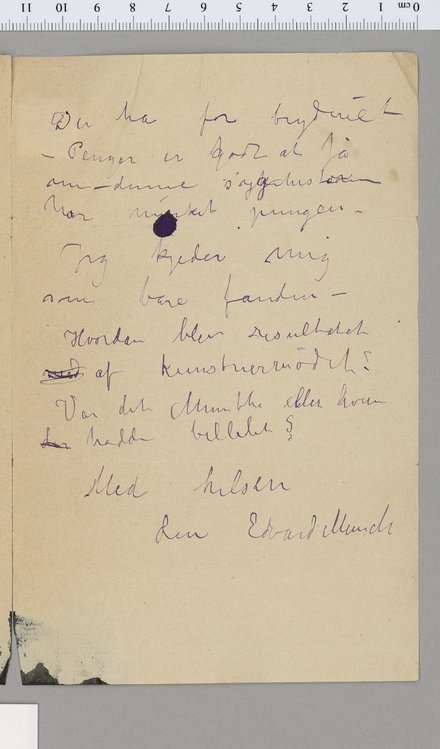 11 10 9 8 7 6 5 4 3 2 1 cm 0
Du ha for bryderiet
– Penger er godt at få
om – denne sygehus
har mærket pungen –
Jeg kjeder mig
som bare fanden –
Hvordan blev resultatet
af kunstnermödet?
Var det Munthe eller hvem
hadde billedet?
Med hilsen
Din Edvard Munch